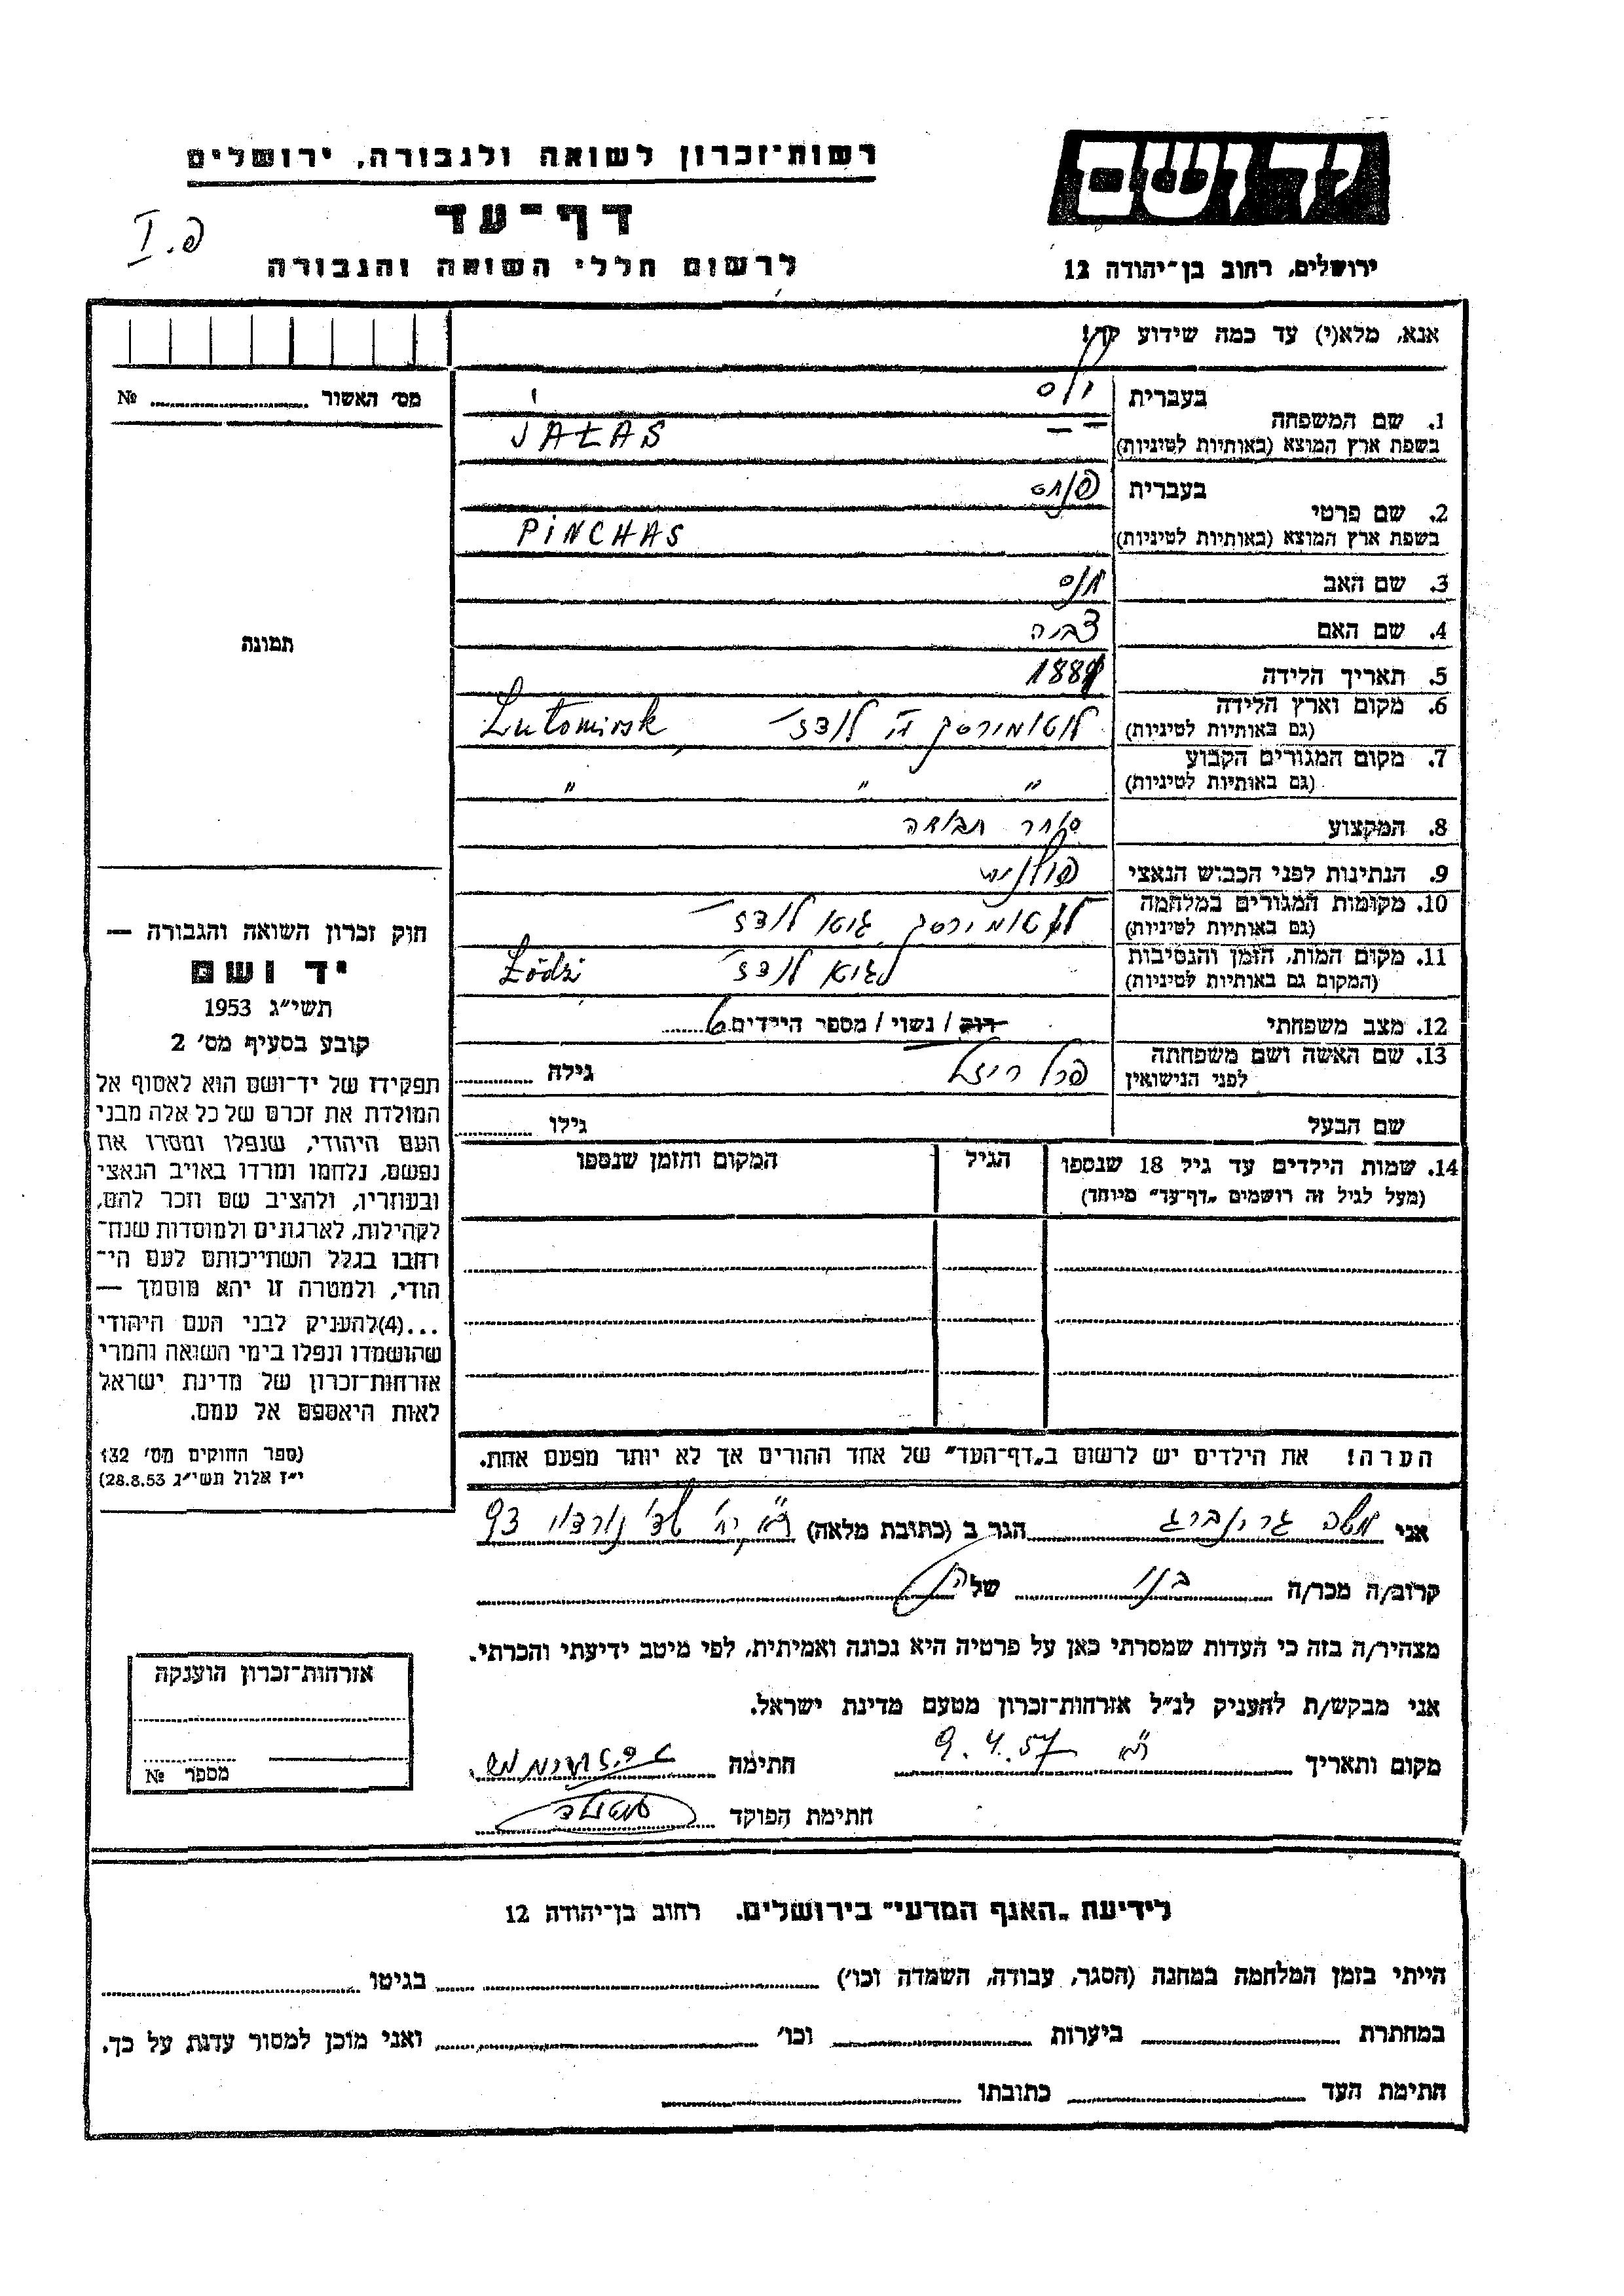 רשות־זכרון לשואה ולגבורה, ירושלים
יד ושם
דף־עד
פ. I
לרשום חללי השואה והגבורה
ירושלים, רחוב בן־יהודה 12
אנא, מלא(י) עד כמה שידוע לך!
מס' האשור № ........
1. שם המשפחה
בעברית
בשפת ארץ המוצא (באותיות לטיניות)
JAŁAS
2. שם פרטי
בעברית פנחס
בשפת ארץ המוצא (באותיות לטיניות)
PINCHAS
3. שם האב
4. שם האם צביה
5. תאריך הלידה
6. מקום וארץ הלידה
(גם באותיות לטיניות)
לוטומירסק לודז' Lutomirsk
7. מקום המגורים הקבוע
(גם באותיות לטיניות)
" " "
8. המקצוע סוחר תבואה
9. הנתינות לפני הכבוש הנאצי פולנית
10. מקומות המגורים במלחמה
(גם באותיות לטיניות)
לוטומירסק, גטו לודז'
11. מקום המות, הזמן והנסיבות
(המקום גם באותיות לטיניות)
לודז' Łódź
12. מצב משפחתי רוק / נשוי / מספר הילדים 6
13. שם האשה ושם משפחתה
לפני הנישואין
פרל רייזל גילה ........
שם הבעל גילו ........
14. שמות הילדים עד גיל 18 שנספו
(מעל לגיל זה רושמים „דף־עד” מיוחד)
הגיל
המקום והזמן שנספו
הערה! את הילדים יש לרשום ב„דף־העד” של אחד ההורים אך לא יותר מפעם אחת.
תמונה
חוק זכרון השואה והגבורה —
יד ושם
תשי״ג 1953
קובע בסעיף מס' 2
תפקידו של יד־ושם הוא לאסוף אל
המולדת את זכרם של כל אלה מבני
העם היהודי, שנפלו ומסרו את
נפשם, נלחמו ומרדו באויב הנאצי
ובעוזריו, ולהציב שם וזכר להם,
לקהילות, לארגונים ולמוסדות שנח־
רחבו בגלל השתייכותם לעם הי־
הודי, ולמטרה זו יהא מוסמך —
...(4)להעניק לבני העם היהודי
שהושמדו ונפלו בימי השואה והמרי
אזרחות־זכרון של מדינת ישראל
לאות היאספם אל עמם.
(ספר החוקים מס' 132
י״ז אלול תשי״ג 28.8.53)
אני משה גרינברג הגר ב (כתובת מלאה) ת״א שד' נורדוי 93
קרוב/ה מכר/ה של
מצהיר/ה בזה כי העדות שמסרתי כאן על פרטיה היא נכונה ואמיתית, לפי מיטב ידיעתי והכרתי.
אני מבקש/ת להעניק לנ״ל אזרחות־זכרון מטעם מדינת ישראל.
מקום ותאריך ת״א 9.4.57 חתימה
חתימת הפוקד
אזרחות־זכרון הוענקה
מספר №
לידיעת „האגף המדעי” בירושלים. רחוב בן־יהודה 12
הייתי בזמן המלחמה במחנה (הסגר, עבודה, השמדה וכו') ........ בגיטו ........
במחתרת ........ ביערות ........ וכו' ........ ואני מוכן למסור עדות על כך.
חתימת העד ........ כתובתו ........